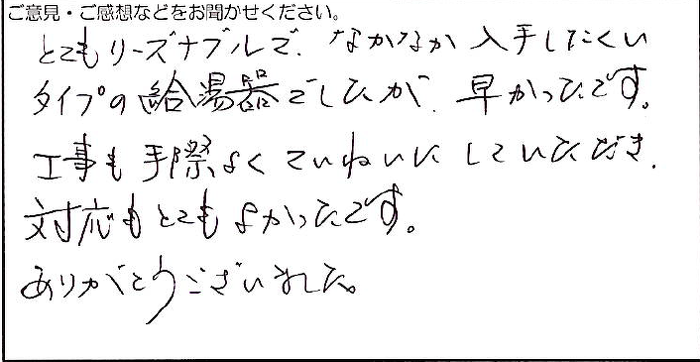 ご意見・ご感想などをお聞かせください。
とてもリーズナブルで、なかなか入手しにくい
タイプの給湯器でしたが、早かったです。
工事も手際よくていねいにしていただき、
対応もとてもよかったです。
ありがとうございました。